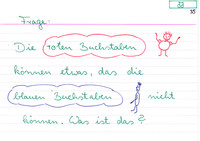 33
10
Frage:
Die roten Buchstaben
können etwas, das die
blauen Buchstaben nicht
können. Was ist das?